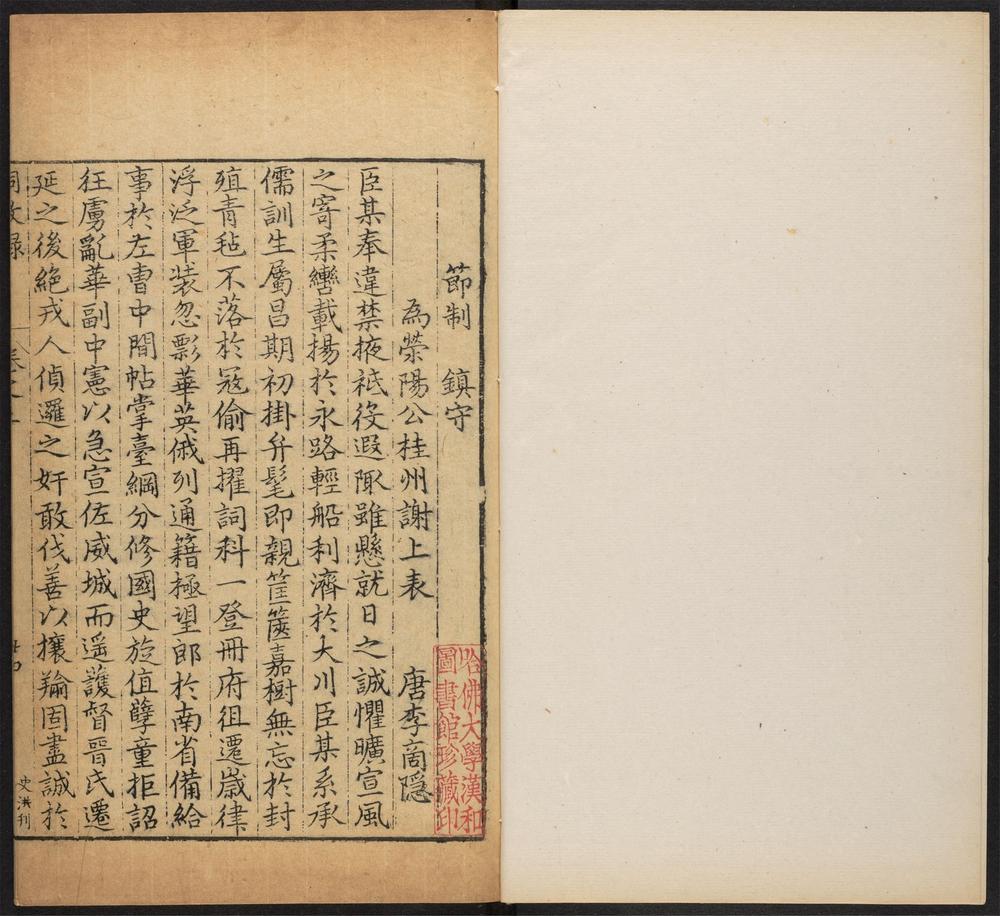 節制　鎮守
為滎陽公桂州謝上表　唐李商隱
臣某奉違禁掖祗役遐陬雖懸就日之誠懼曠宣風
之寄柔轡載揚於永路輕船利濟於大川臣某系承
儒訓生屬昌期初掛弁髦即親筐篋嘉樹無忘於封
殖青毡不落於冦偷再擢詞科一登冊府徂遷歲律
浮泛軍裝忽影華英俄列通籍極望郎於南省備給
事於左曹中間帖掌臺綱分修國史旋值孽童拒詔
狂虜亂華副中憲以急宣佐威城而遥護督晉氏遷
延之後絶戎人偵邏之奸敢伐善以攘羭固盡誠於
卷之
廿四
史洪刊
哈佛大學漢和
圖書館珍藏印